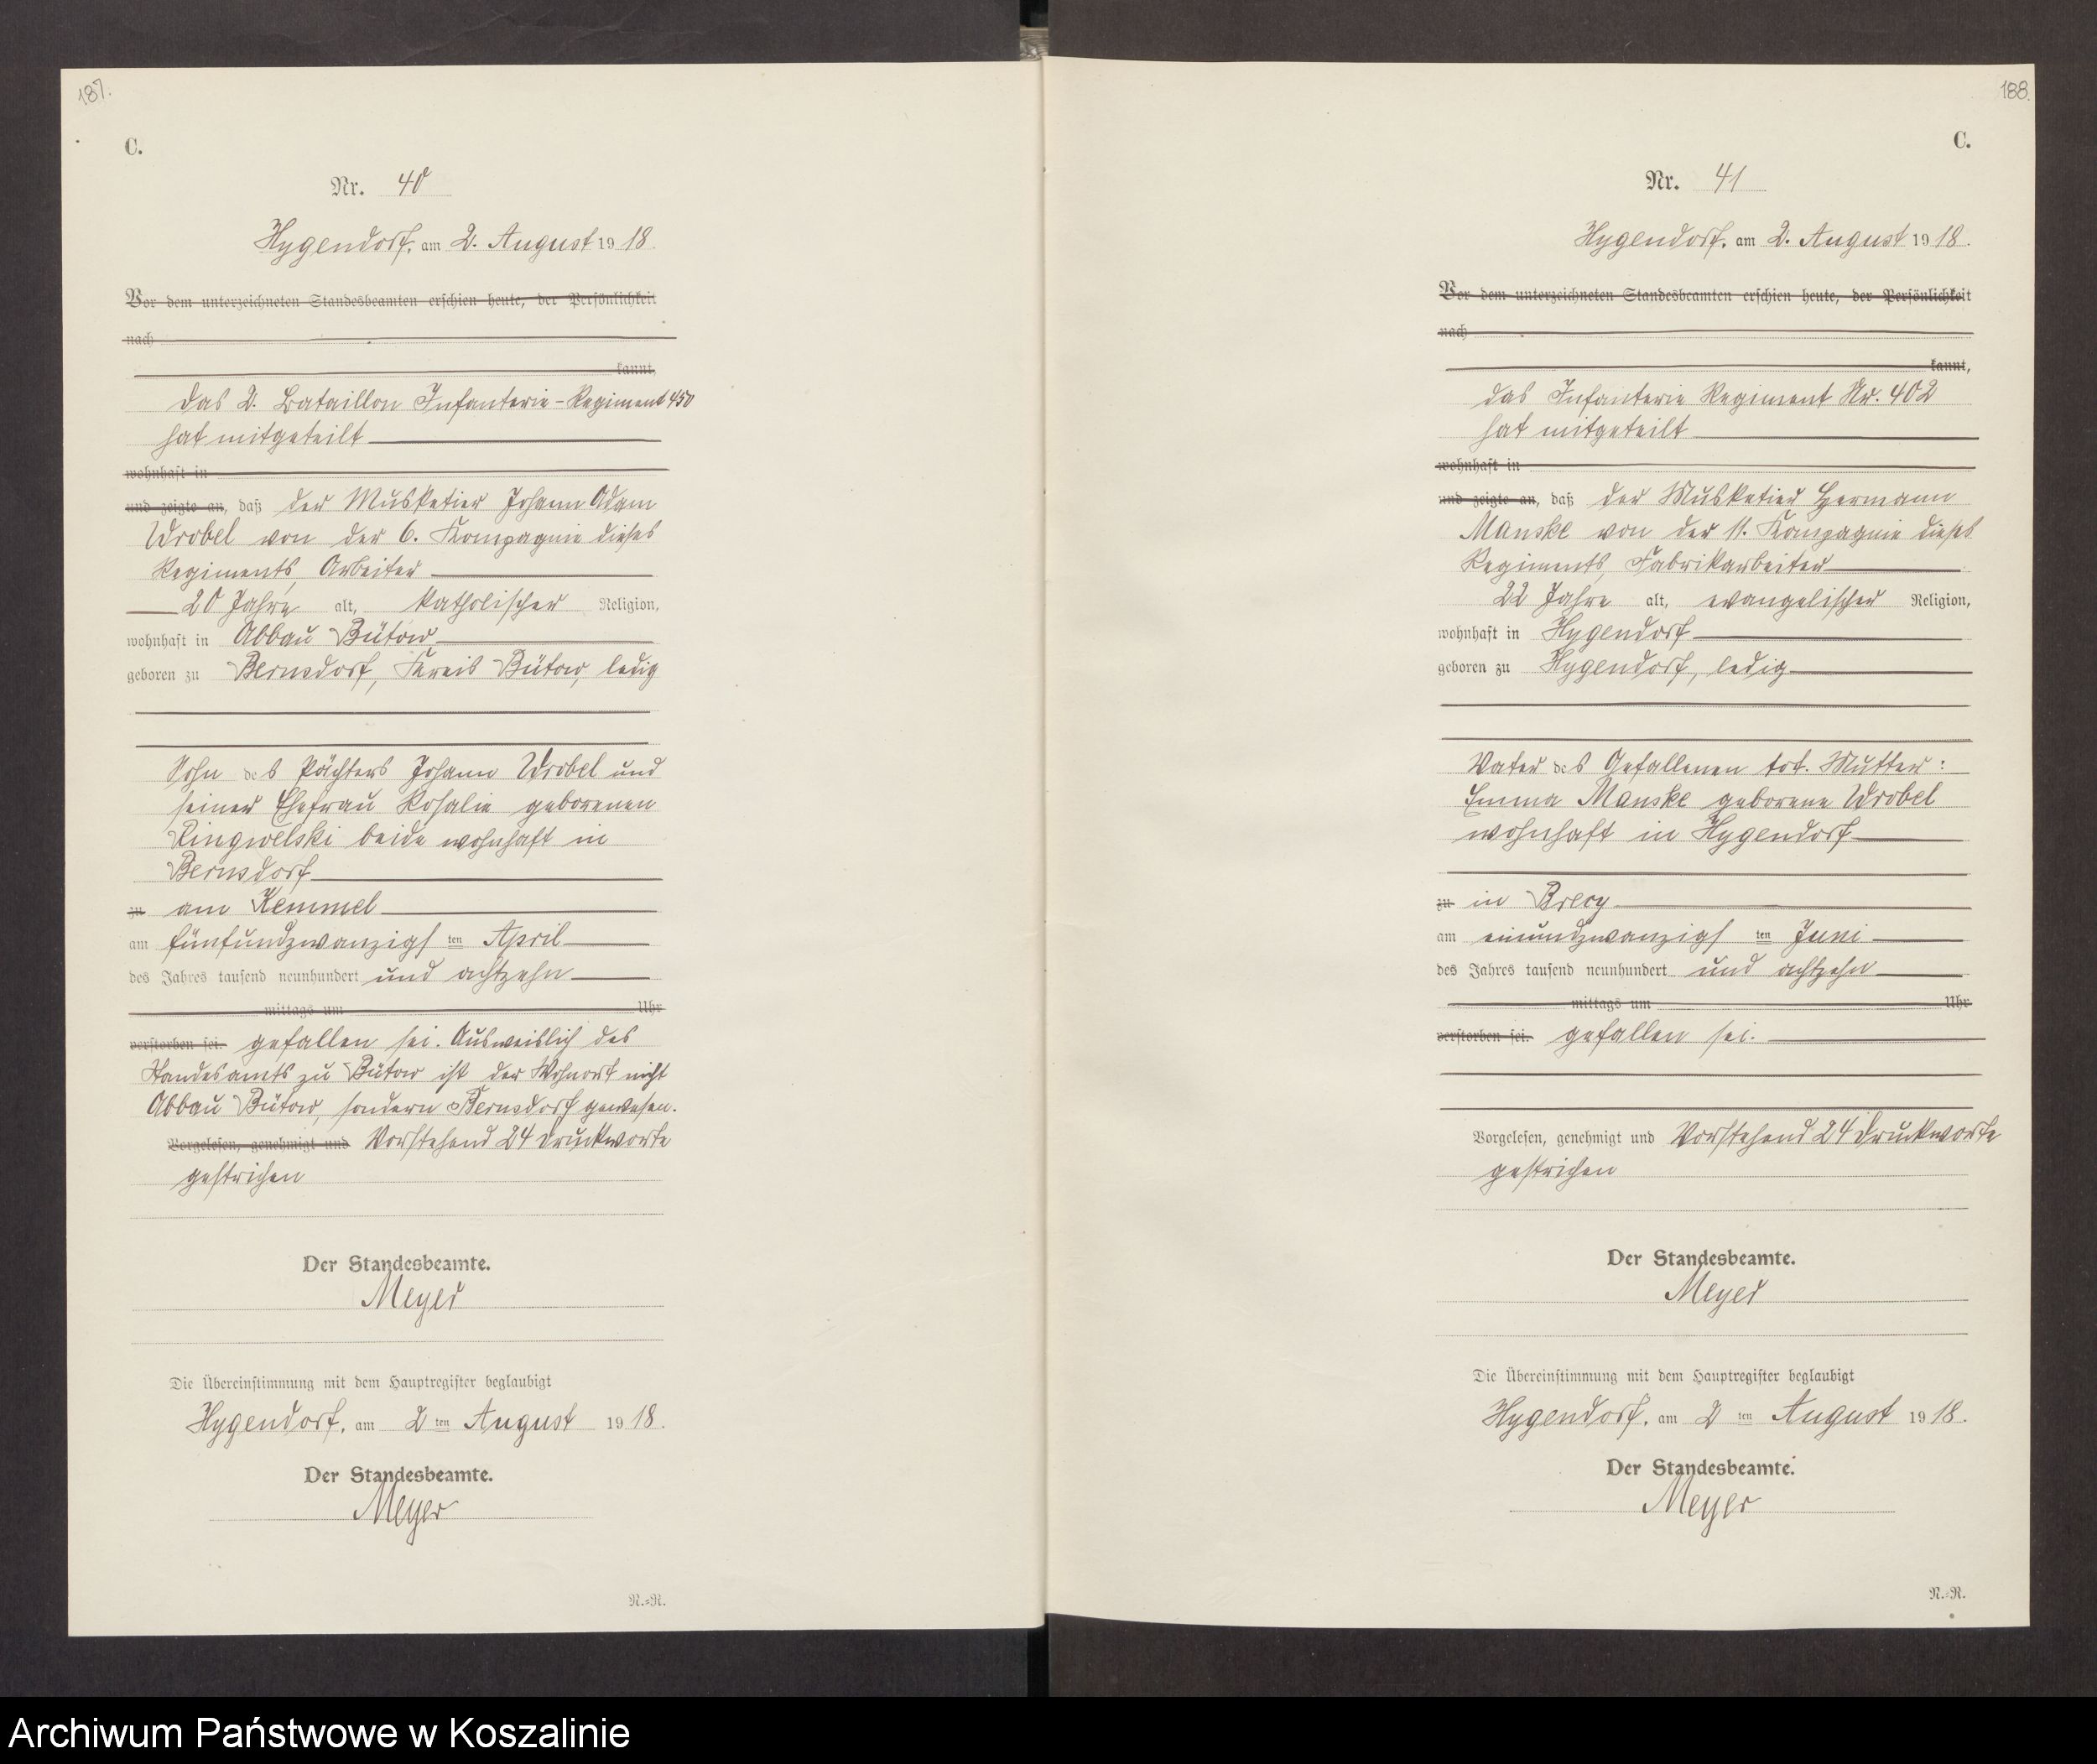 187.
C.
Nr. 40
Hygendorf, am 2. August 1918.
Vor dem unterzeichneten Standesbeamten erschien heute, der Persönlichkeit
nach
kannt,
das 2. Bataillon Infanterie-Regiment 450
hat mitgeteilt
wohnhaft in
und zeigte an, daß der Musketier Johann Adam
Wrobel von der 6. Kompagnie dieses
Regiments, Arbeiter
20 Jahre alt, katholischer Religion,
wohnhaft in Abbau Bütow
geboren zu Bernsdorf, Kreis Bütow, ledig
Sohn des Pächters Johann Wrobel und
seiner Ehefrau Rosalie geborenen
Ringwelski beide wohnhaft in
Bernsdorf
zu am Kemmel
am fünfundzwanzigsten April
des Jahres tausend neunhundert und achtzehn
mittags um Uhr
verstorben sei. gefallen sei. Ausweislich des
Standesamts zu Bütow ist der Wohnort nicht
Abbau Bütow, sondern Bernsdorf gewesen.
Vorgelesen, genehmigt und Vorstehend 24 Druckworte
gestrichen
Der Standesbeamte.
Meyer
Die Übereinstimmung mit dem Hauptregister beglaubigt
Hygendorf, am 2ten August 1918.
Der Standesbeamte.
Meyer
N.=R.
188.
C.
Nr. 41
Hygendorf, am 2. August 1918.
Vor dem unterzeichneten Standesbeamten erschien heute, der Persönlichkeit
nach
kannt,
das Infanterie Regiment Nr. 402
hat mitgeteilt
wohnhaft in
und zeigte an, daß der Musketier Hermann
Manske von der 11. Kompagnie dieses
Regiments, Fabrikarbeiter
22 Jahre alt, evangelischer Religion,
wohnhaft in Hygendorf
geboren zu Hygendorf, ledig
Vater des Gefallenen tot. Mutter:
Emma Manske geborene Wrobel
wohnhaft in Hygendorf
zu in Brecy
am einundzwanzigsten Juni
des Jahres tausend neunhundert und achtzehn
mittags um Uhr
verstorben sei. gefallen sei.
Vorgelesen, genehmigt und Vorstehend 24 Druckworte
gestrichen
Der Standesbeamte.
Meyer
Die Übereinstimmung mit dem Hauptregister beglaubigt
Hygendorf, am 2ten August 1918.
Der Standesbeamte.
Meyer
N.=R.
Archiwum Państwowe w Koszalinie